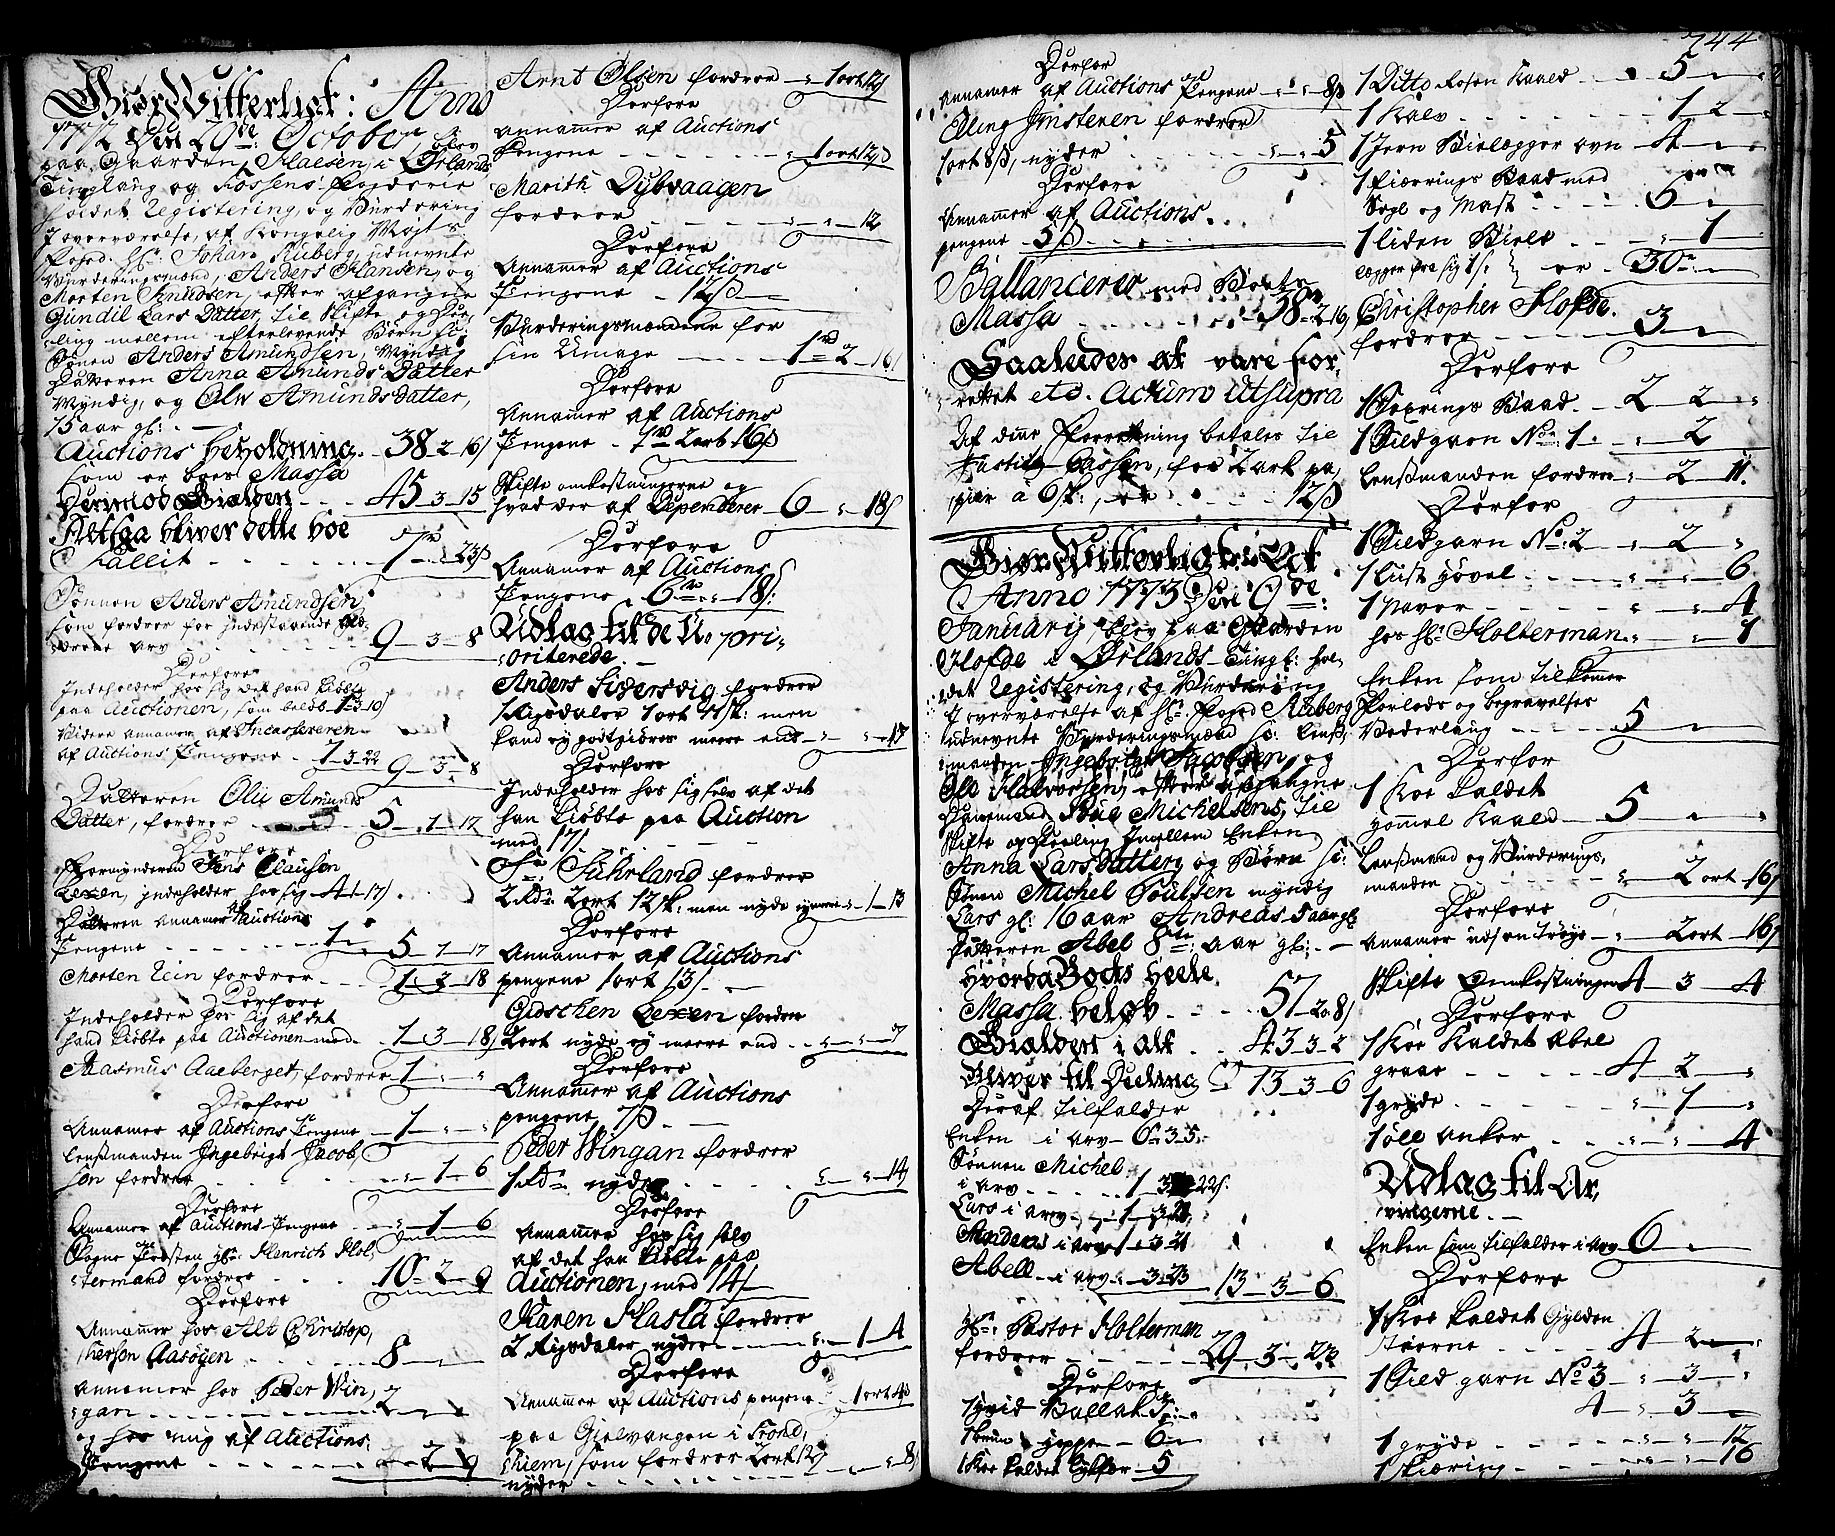 Giør Witterligt: Anno
1772 Den 29de October, blev
paa Gaarden, Flaesen, i Ørlands
Tinglaug og Fossens Fogderie
holdet Registering, og Vurdering
J overværelse, af Kongelig Mayts
Foged Hr. Johan Ruberg, udnevnte
Vurderingsmænd, Anders Hansen, og
Morten Knudsen, efter afgangne
Gundil Lars Datter, til Skifte og Dee-
ling mellem efterlevende Børn sc:
Sønen Anders Amundsen, Myndig
Datteren Anna Amunds Datter
Myndig, og Olu Amundsdatter,
15 aar gl: -
Auctions beholdning. 38-2-16/
som er boes Massa
Derimod Gielden - - 45-3-15
Altsaa bliver dette boe
Fallit - - - 7 - 23ß
Sønnen Anders Amundsen
som fordrer for indestaaende
arv - - - 9-3-8
Derfore
Indeholder hos sig det hand kiøbte
paa Auctionen, som beløb 1-3-10/
Videre annamer af Incasereren
af Auctions Pengene - 7-3-22 9-3-8
Datteren Olu Amunds
Datter, fordrer - - 5-1-17
Derfore
Formynderen Jens Clausen
Lexen, indeholder hos sig 4-1-17/
Datteren annamer af Auctions
Pengene - - - 1- 5-1-17
Morten Rein fordrer - - 1-3-18
Derfore
Indeholder hos sig af det
hand kiøbte paa Auctionen med - 1-3-18/
Rasmus Aaeberget, fordrer 1 - -
Derfore
Annamer af Auctions Pengene - 1 - -
Lensmanden Ingebrigt Jacob,
sen fordrer - - - 1-6
Derfore
Annamer af Auctions Pengene - - 1-6
Sogne Præsten Hr. Henrich Hol,
termand fordrer - - 10-2-9
Derfore
Annamer hos Alt Christop,
hersen Aasøyen - - - 8
annamer hos Peder Win,
gan - - - 2
og hos mig af Auctions
Pengene - - - 2-9
Arnt Olsen fordrer - 1 ort 12/
Derfore
annamer af Auctions
Pengene - - - 1 ort 12ß
Marith Dybvaagen
fordrer - - - 12
Derfore
Annamer af Auctions
Pengene - 12ß
Vurderingsmændene for
sin Umage - - 1-2-16/
Derfore
Annamer af Auctions
Pengene - 1rd 2 ort 16ß
Skifte omkostningerne og
hvad der af Dependerer 6 - 18/
Derfore
Annamer af Auctions
Pengene 6rd - 18/
Udlag til de U, pri-
oriterede.
Anders Siversvig fordrer
1 Rigsdaler 1 ort 11sk: men
kand ey godtgiøres meere end - - 17
Derfore
Indeholder hos sig selv af det
han kiøbte paa Auction
med 17/
Sr. Fuhrland fordrer
2 Rdr 2 ort 12sk: men nyder - 1-13
Derfore
Annamer af Auctions
pengene 1 ort 13/
Gudschen Lexen fordrer
2 ort nyder ey meere end - - 7
Derfore
Annamer af Auctions
pengene, 7ß
Peder Wingan fordrer
1 Rdr nyder - - - 14
Derfore
Annamer hos sig selv
af det han kiøbte paa
Auctionen, med 14/
Karen Hasla fordrer
2 Rigsdaler nyder - - 1-4
Derfore
Annamer af Auctions pengene - 1 ort 4ß
paa Gielvangen i Trond,
hiem, som fordrer 2 ort 12/
nyder - - - 8/
744
Derfor
annamer af Auctions Pengene - - 8ß
Eling Jonstenen fordrer
1 ort 8ß, nyder - - - 5
Derfore
Annamer af Auctions
pengene - 5ß
Ballancerer med Boets
Massa - - - 38-2-16
Saaledes at være For,
rettet etc. Actum Utsupra
Af dene Forretning betales til
Justitz Cassen, for 2 ark pa,
pier à 6sk:, er - - 12ß
Giør Witterligt: At
Anno 1773 Den 9de
January, blev paa Gaarden
Hofde i Ørlands Tingl: hol,
det Registering, og Vurdering
J overværelse af Hr. Foged Ruberg
udnevnte Vurderingsmænd sc: Lens,
manden Ingebrigt Jacobsen, og
Ole Halvorsen, efter afgangne
Danemand Poul Michelsens, til
Skifte og Deeling Imellem Enken
Anna Lars Datter, og Børn sc:
Sønen Michel Poulsen myndig
Lars gl: 16 aar Andreas 5 aar gl
Datteren Abel 8te: aar gl: -
Hvorda Boets heele
Massa beløb - - 57-2-8/
Gielden i alt - - 43-3-2
Bliver til Deeling 13-3-6
Deraf tilfalder
Enken i arv - 6-3-5.
Sønnen Michel
i arv - - - 1-3-22/.
Lars i arv - - 1-3-21
Anders i arv 1-3-21
Abell - i arv - 3-23 13-3-6
Hr. Pastor Holterman
fordrer - - - 29-3-23
Derfore
1 hvid Ballak
1 bruun hoppe - 6
1 Koe kaldet Sylfær - 5
1 Ditto Rosen kaaed - - 5
1 Kalv - - - 1-2
1 Jern Bielegger ovn - 4
1 fiærrings Baad med
Segl og Mast - - - 6
1 liden Biele - - - 1
legger fra sig 1/: er - 30
Christopher Hofde.
fordrer - - - 3
Derfore
1 Sexrings Baad. - 2-2-
1 Sildgarn No. 1 - - 2
Lensmanden fordrer - 2-11.
Derfor
1 Sildgarn No. 2 - 2
1 Lust Høvel - - - 6.
1 Naver - - - 4
hos Hr. Holterman. - - 1
Enken som tilkomer
Forlods og begravelses
Vederlaug - - - 5
Derfor
1 Koe kaldet
gommel kaaed - 5
Lensmand og Vurderings,
mænden - - - 2 ort 16/
Derfore
annamer udj en trøye - 2 ort 16/
Skifte Omkostninger 4-3-4
Derfore
1 Koe kaldet Abel
graae - - - 4-2
1 gryde - - - 1
1 øll anker - - - 4
Udlag til Ar,
vingerne.
Enken som tilfalder i arv 6
Derfore
1 Koe kaldet Gylden
stierne - - - 4-2
1 Sild garn No 3 - 3 -
4 - 3
1 gryde - - - 12
1 skiæring - - - 16